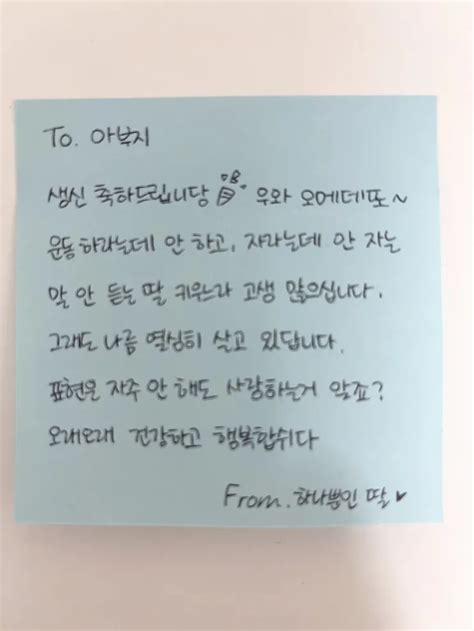 To. 아부지
생신 축하드립니당 우와 오메데또~
운동하라는데 안 하고, 자라는데 안 자는
말 안 듣는 딸 키우느라 고생 많으십니다.
그래도 나름 열심히 살고 있답니다.
표현은 자주 안 해도 사랑하는거 알죠?
오래오래 건강하고 행복합쉬다
From. 하나뿐인 딸♥